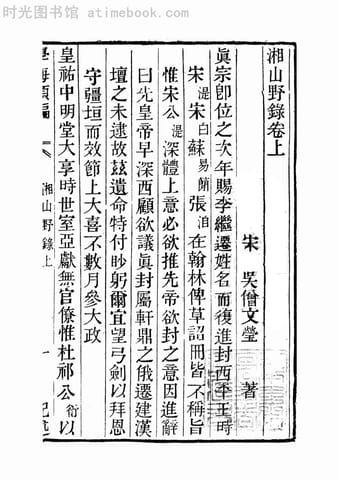 时光图书馆 www.atimebook.com
湘山野錄卷上
宋 吳僧文瑩 著
真宗即位之次年賜李繼遷姓名而復進封西平王時
宋湜宋白蘇易簡張洎在翰林俾草詔冊皆不稱旨
惟宋公湜深體上意必欲推先帝欲封之意因進辭
曰先皇帝早深西顧欲議真封屬軒鼎之俄遷建漢
壇之未逮故茲遺命特付眇躬爾宜望弓劍以拜恩
守疆垣而效節上大喜不數月參大政
皇祐中明堂大享時世室亞獻無官僚惟杜祁公衍以
學海類編
湘山野錄上
一